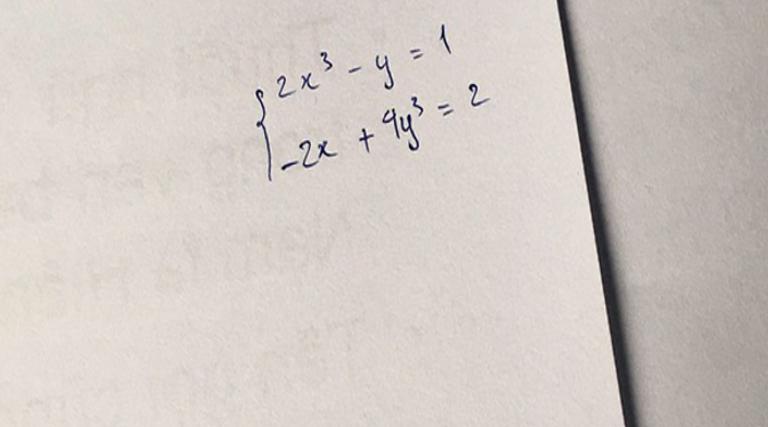 { 2x³ - y = 1
-2x + 4y³ = 2